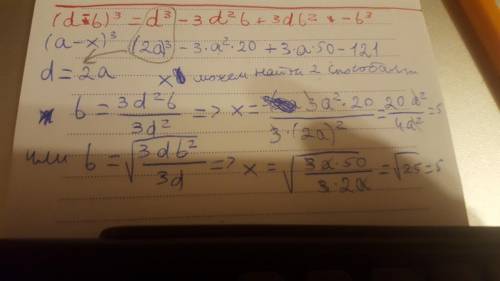 (d-b)³ = d³ - 3d²b + 3db² - b³
(a-x)³ (2a)³ - 3·a²·20 + 3·a·50 - 121
d = 2a x можем найти 2 способами
b = 3d²b / 3d² => x = 3a²·20 / 3·(2a)² = 20a² / 4a² = 5
или b = √(3db² / 3d) => x = √(3a·50 / 3·2a) = √25 = 5